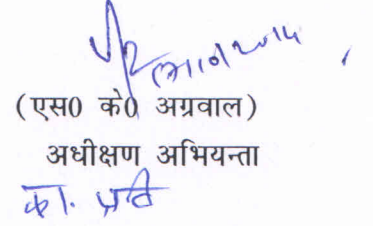 (एस0 के0 अग्रवाल)
अधीक्षण अभियन्ता
का. प्रति